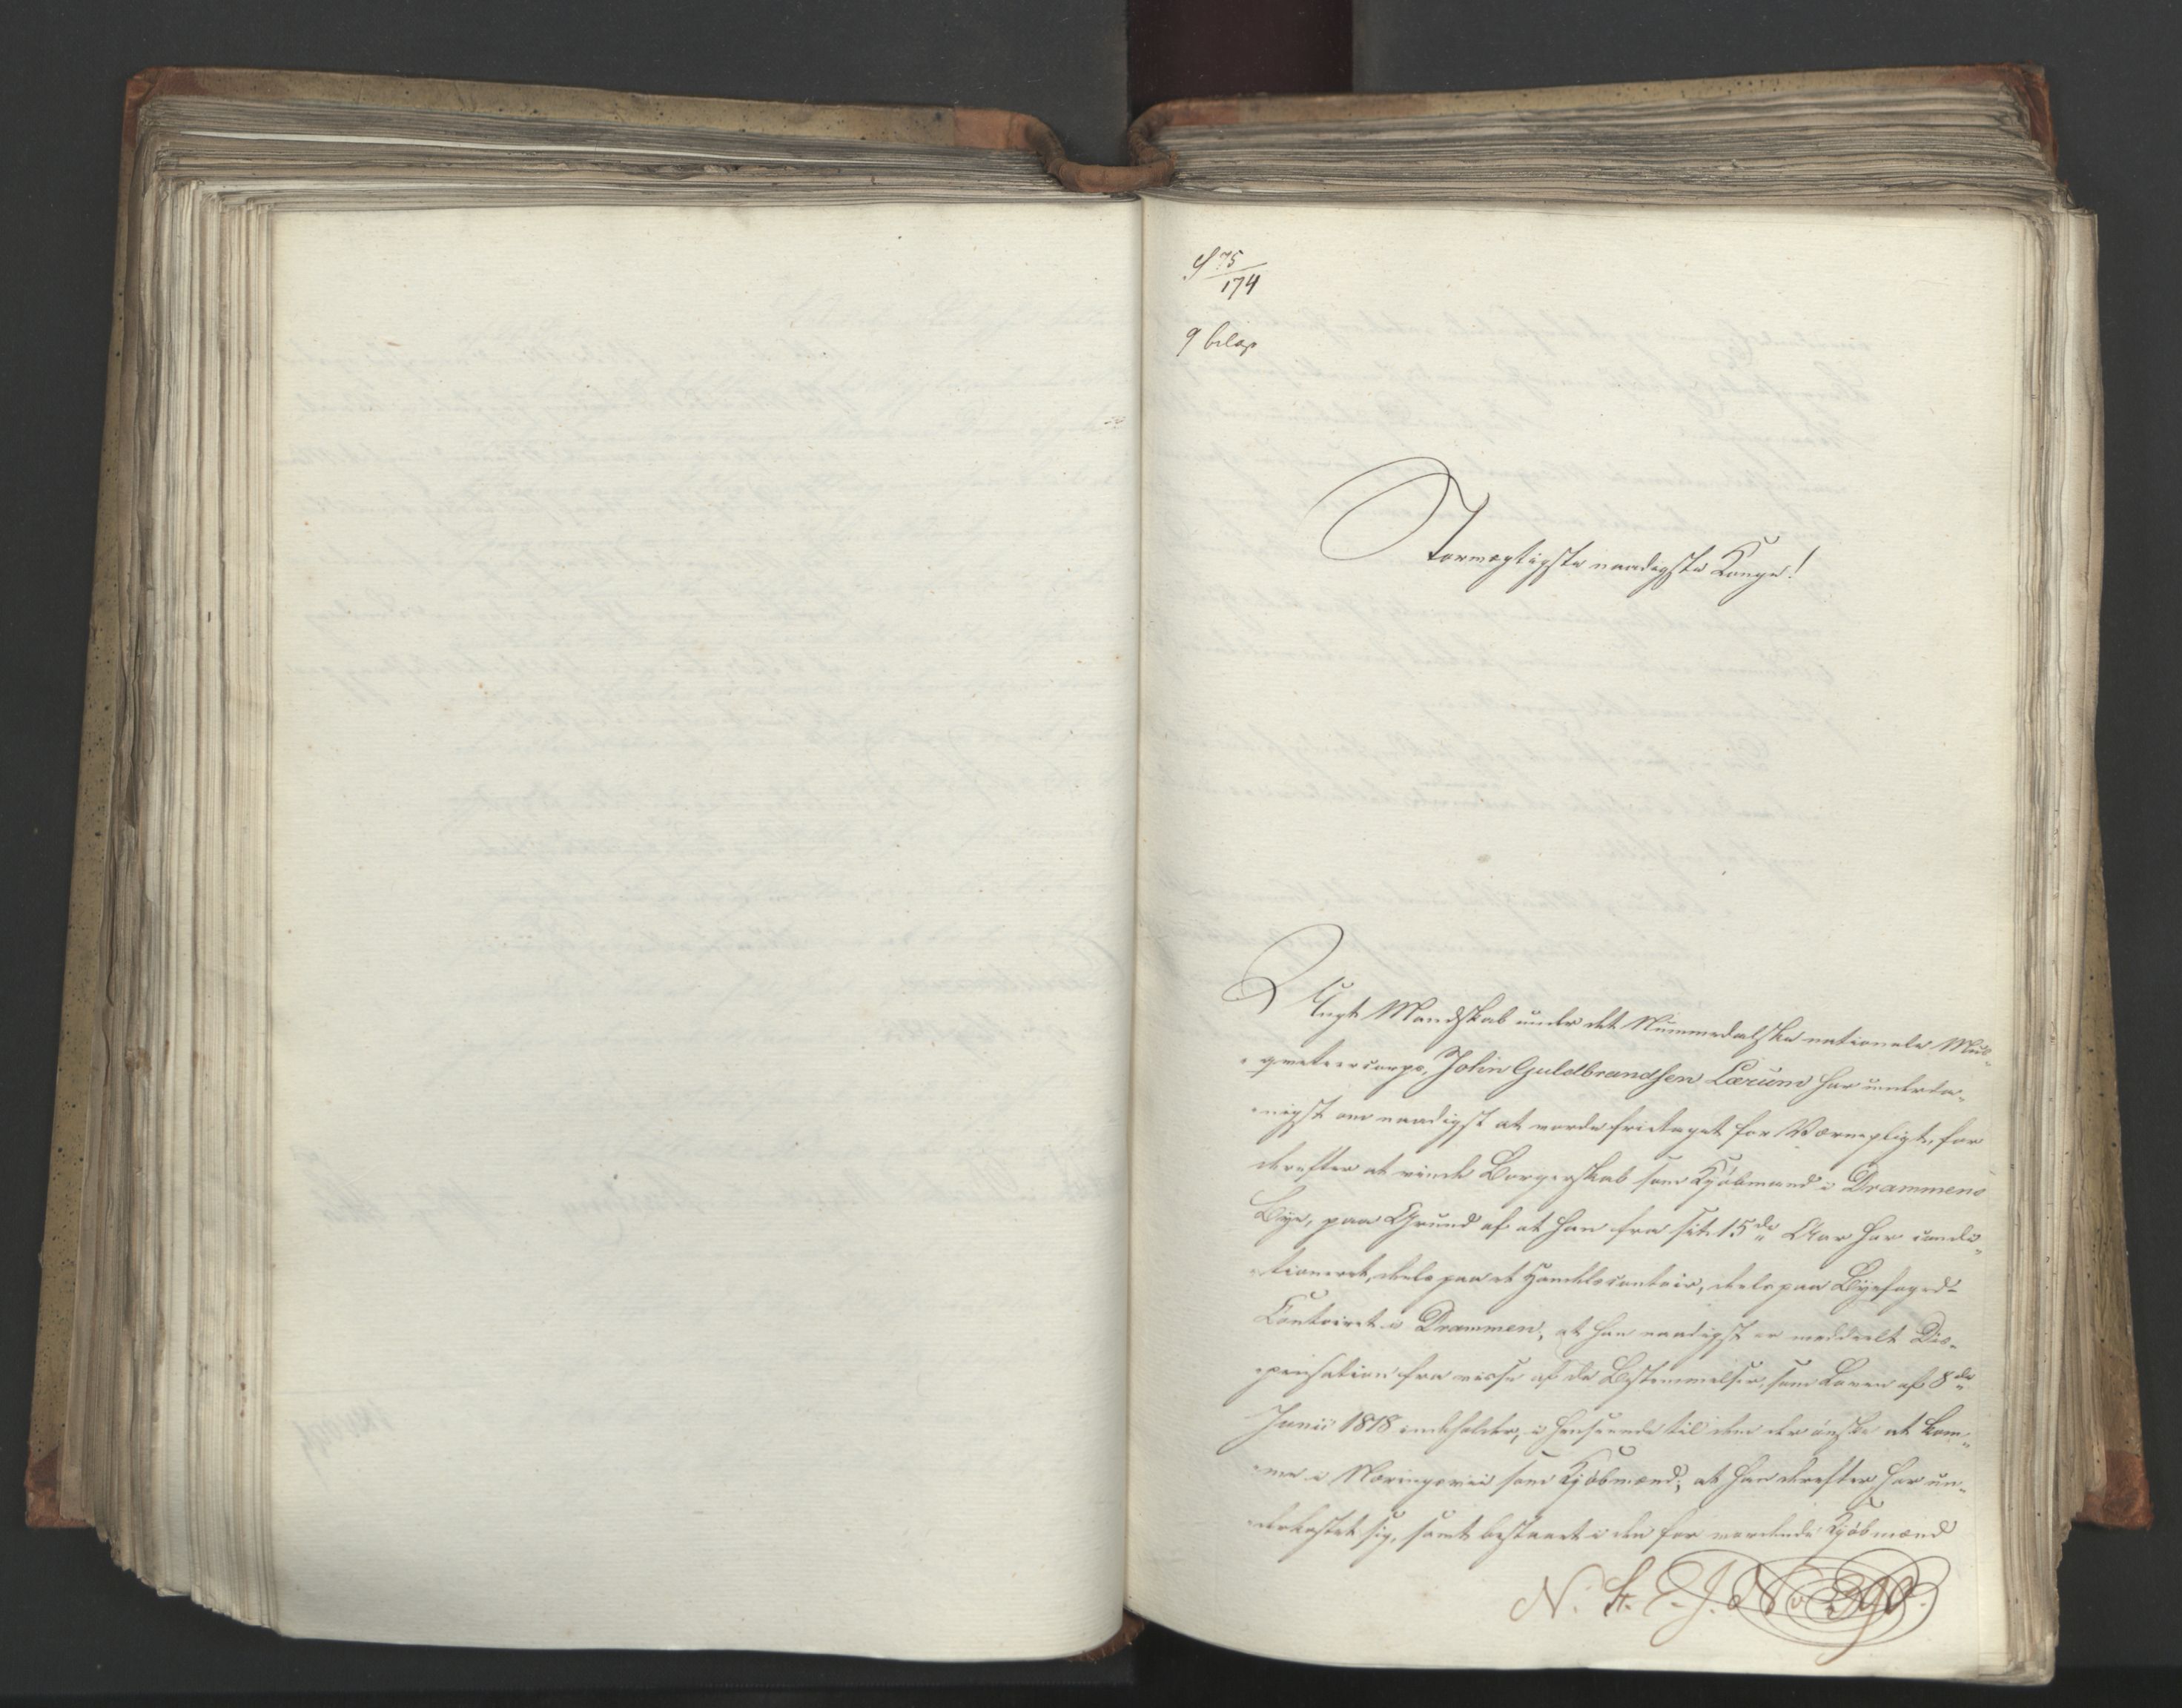 S 75/174
9 bilag
Stormægtigste naadigste Konge!
Ungt Mandskab under det Nummedalske nationale Mus-
qveteercorps, John Guldbrandsen Lærum har underda-
nigst om naadigst at vorde fritaget for Værnepligt, for
derefter at vinde Borgerskab som Kjøbmand i Drammens
Bye, paa Grund af at han fra sit 15de Aar har condi-
tioneret, deels paa et Handelscontoir, deels paa Byefoged-
Contoiret i Drammen, at han naadigst er meddeelt Dis-
pensation fra visse af de Bestemmelser, som Loven af 8de
Junii 1818 indeholder, i Henseende til dem der ønske at kom-
me i Næringsvei som Kjøbmænd; at han derefter har un-
derkastet sig, samt bestaaet i den for vordende Kjøbmænd
N. St. E. J. No 390.